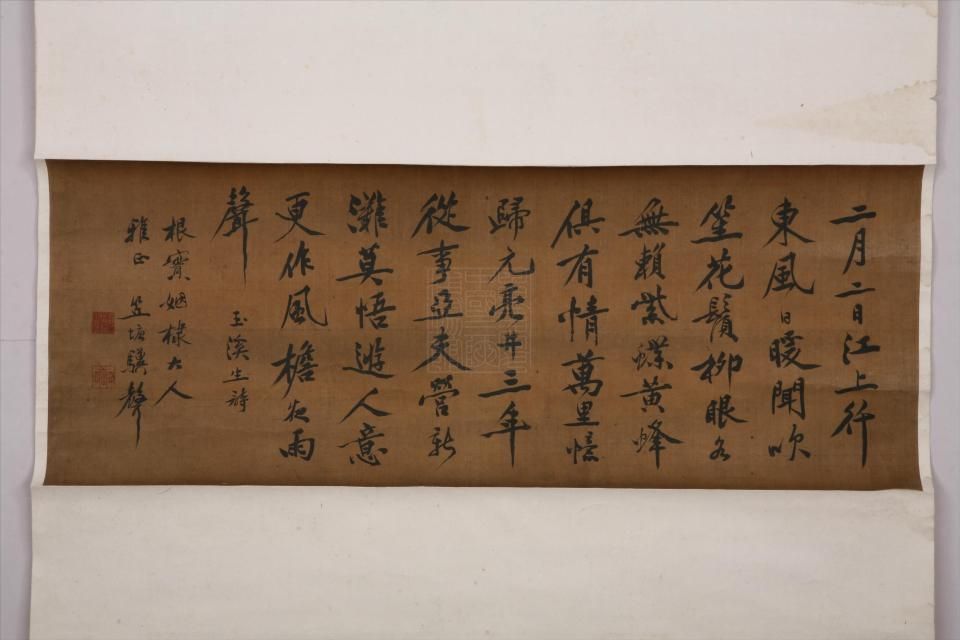 二月二日江上行
東風日暖聞吹
笙花鬚柳眼各
無賴紫蝶黃蜂
俱有情萬里憶
歸元亮井三年
從事亞夫營新
灘莫悟遊人意
更作風檐夜雨
聲
玉溪生詩
根寶姻棣大人
雅正